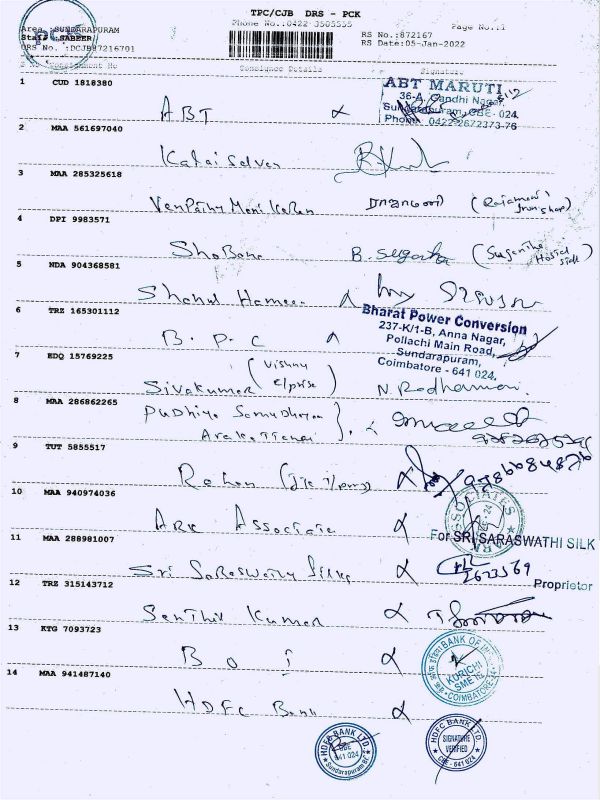 TPC/CJB DRS - PCK
Phone No.:0422 3505555
Page No.:1
Area :SUNDARAPURAM
Staff :SABEER
DRS No. :DCJB87216701
RS No.:872167
RS Date:05-Jan-2022
Consignment No Consignee Details Signature
1 CUD 1818380
ABT
ABT MARUTI
36-A, Gandhi Nagar,
Sundarapuram, CBE - 024.
Phone: 0422-2672373-76
2 MAA 561697040
Kalaiselvan
3 MAA 285325618
ராஜாமணி
4 DPI 9983571
Shobana
5 NDA 904368581
Shahul Hameed
6 TRZ 165301112
B. P. C
Bharat Power Conversion
237-K/1-B, Anna Nagar,
Pollachi Main Road,
Sundarapuram,
Coimbatore - 641 024.
7 EDQ 15769225
Sivakumar (Vishnu
E/prise)
N. Radhamani.
8 MAA 286862265
Pudhiya
9 TUT 5855517
10 MAA 940974036
ARK Associate
11 MAA 288981007
Sri Saraswathy Silks
For SRI SARASWATHI SILK
2673569
Proprietor
12 TRZ 315143712
Senthil Kumar
13 KTG 7093723
B O I
BANK OF IN
KURICHI
SME
COIMBATORE
14 MAA 941487140
HDFC Bank
HDFC BANK LTD.
CBE
641 024
Sundarapuram Br
HDFC BANK LTD.
SIGNATURE
VERIFIED
CBE - 641 024